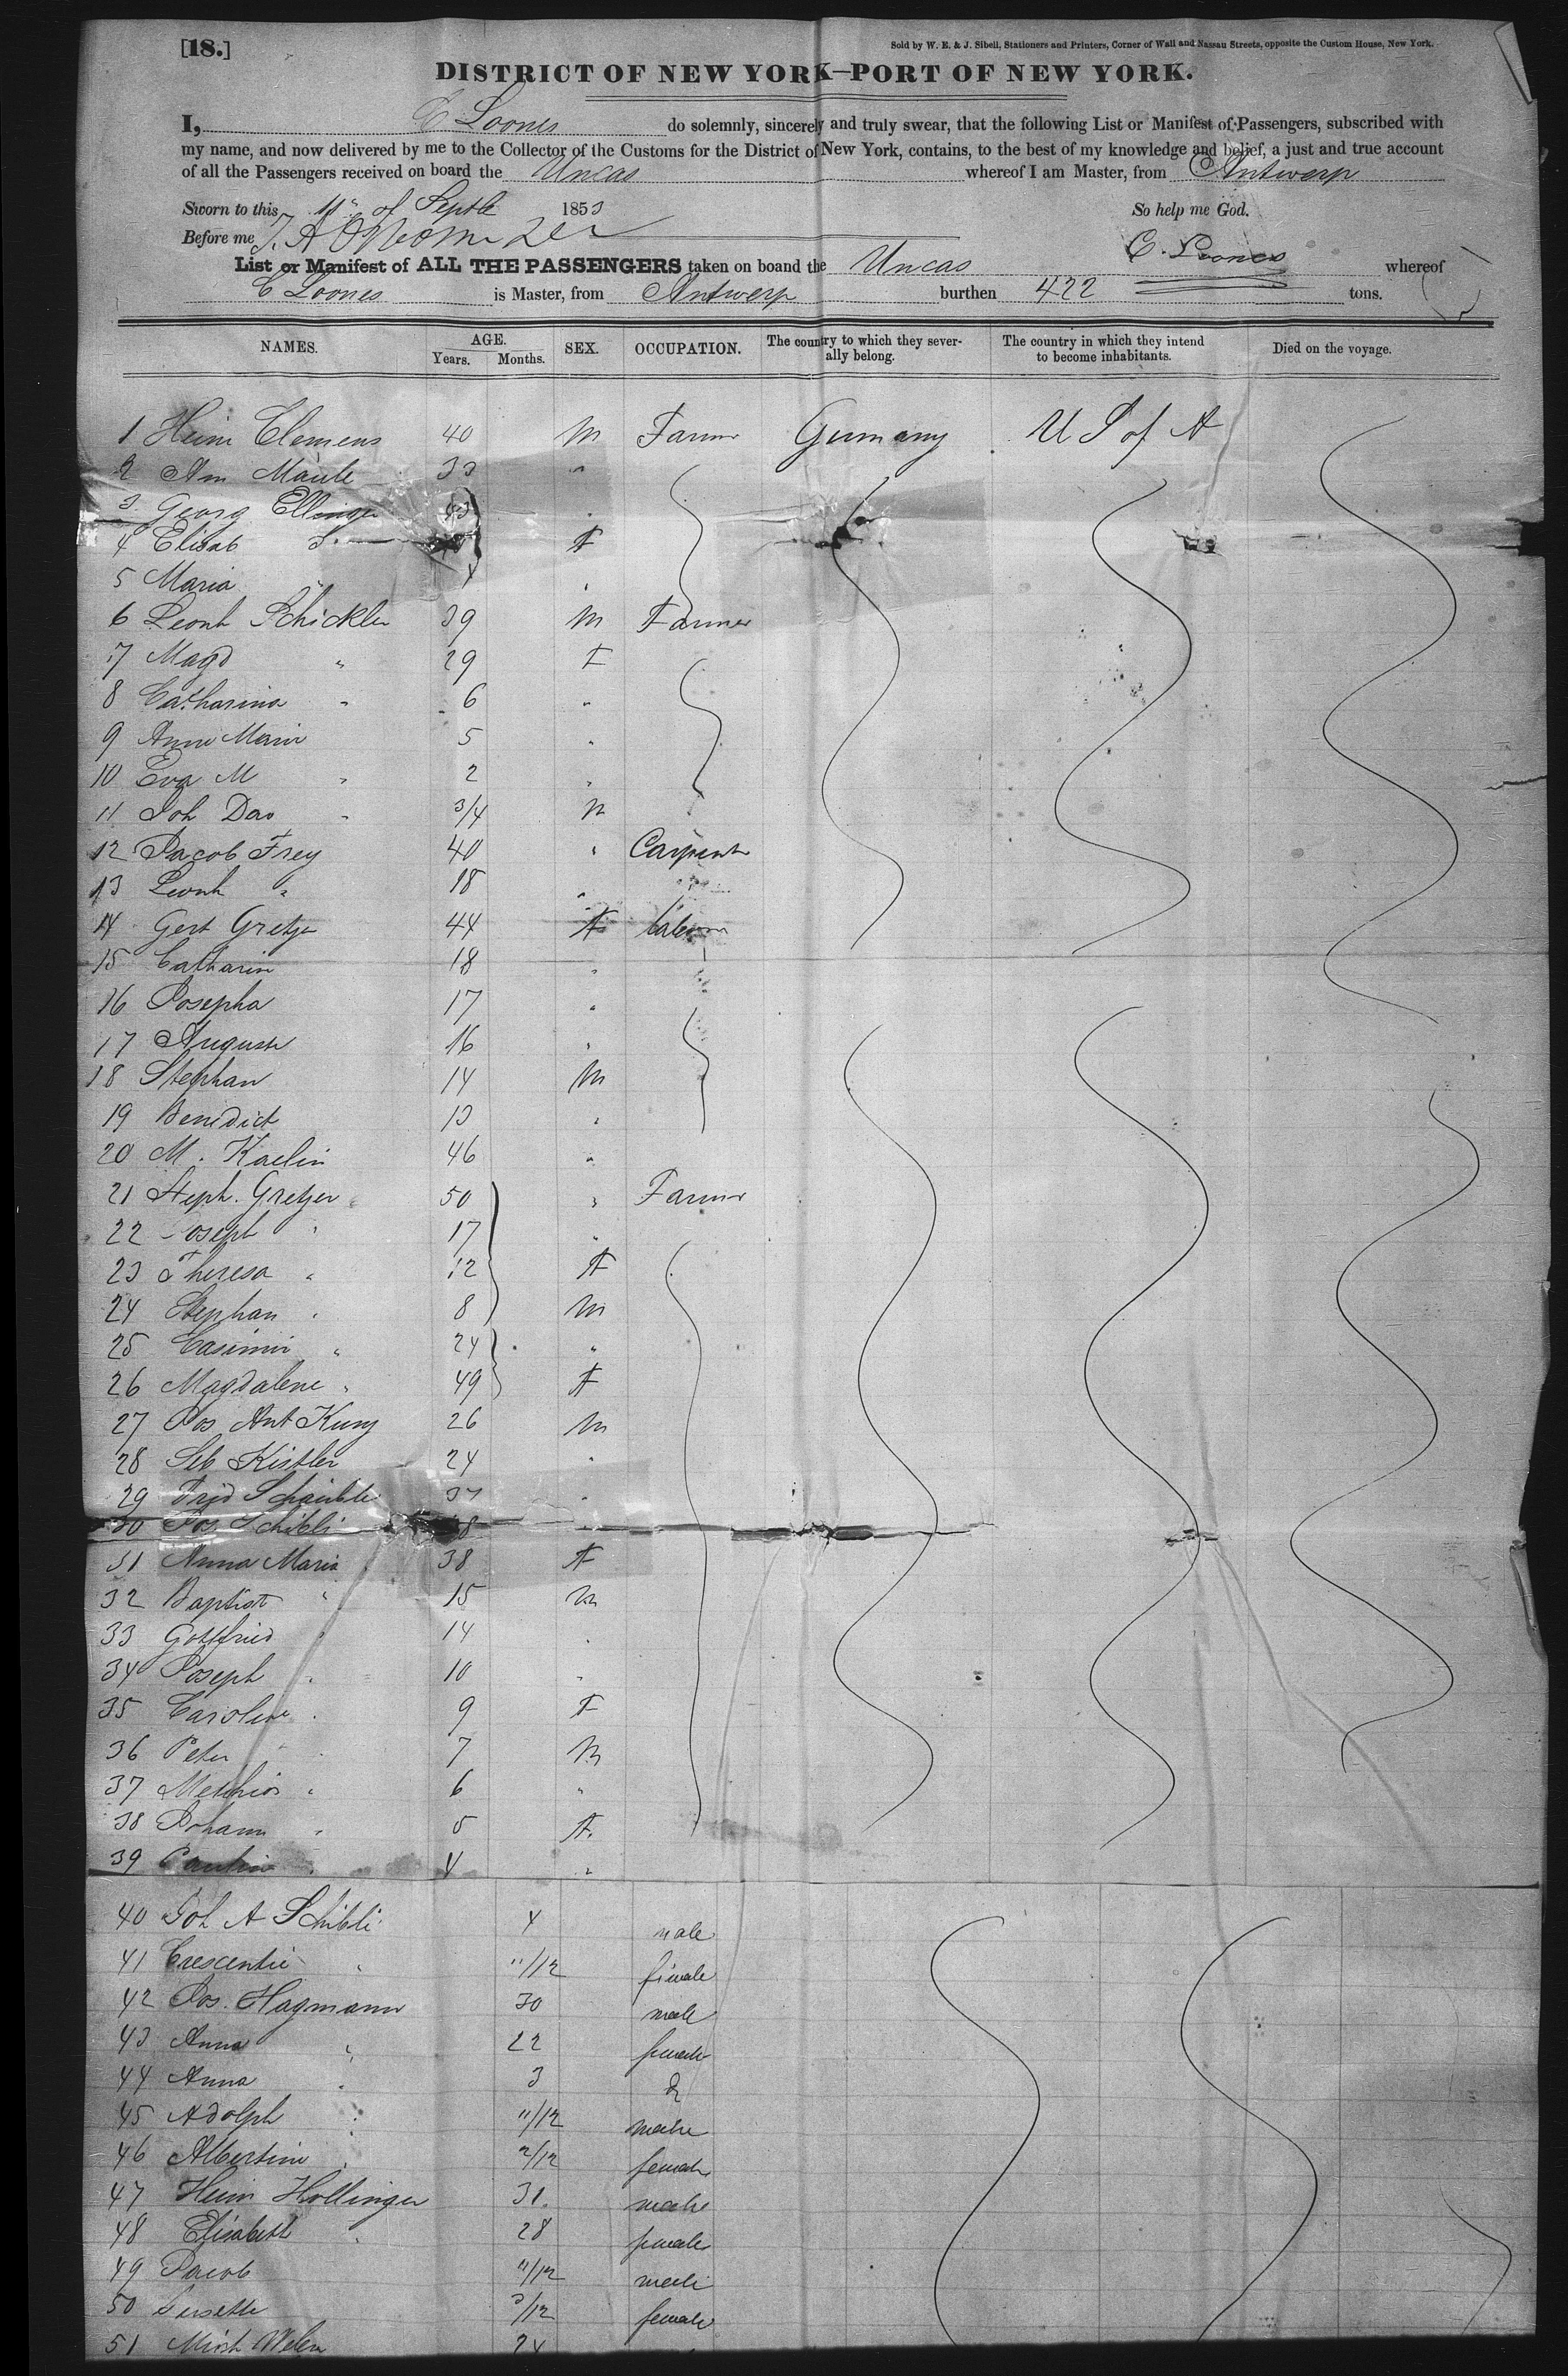 [18.]
Sold by W. E. & J. Sibell, Stationers and Printers, Corner of Wall and Nassau Streets, opposite the Custom House, New York.
DISTRICT OF NEW YORK—PORT OF NEW YORK.
I, C Loones do solemnly, sincerely and truly swear, that the following List or Manifest of Passengers, subscribed with
my name, and now delivered by me to the Collector of the Customs for the District of New York, contains, to the best of my knowledge and belief, a just and true account
of all the Passengers received on board the Uncas whereof I am Master, from Antwerp
Sworn to this of Septb 1853 So help me God.
Before me C. Loones
List or Manifest of ALL THE PASSENGERS taken on boand the Uncas whereof
C Loones is Master, from Antwerp burthen 422 tons.
NAMES. AGE. Years. Months. SEX. OCCUPATION. The country to which they severally belong. The country in which they intend to become inhabitants. Died on the voyage.
1 Heinr Clemens 40 M Farmer Germany U S of A
2 33 "
3 Georg Ellinger 43 "
4 Elisab F
5 Maria " "
6 Leonh Schickler 39 M Farmer
7 Magd " 29 F
8 Catharina " 6 "
9 Anna Maria 5 "
10 Eva M " 2 "
11 Joh Dav " 3/4 M
12 Jacob Frey 40 " Carpent
13 Leonh " 18 "
14 Gert 44 F
15 Catharin 18 "
16 Josepha 17 "
17 August 16 "
18 Stephan 14 M
19 Benedict 13 "
20 M. Kaelin 46 "
21 Steph. Gretzer 50 " Farmer
22 Joseph " 17 "
23 Theresa " 12 F
24 Stephan " 8 M
25 Casimir " 24 "
26 Magdalene " 49 F
27 Jos Ant Kung 26 M
28 Seb Kistler 24 "
29 Frid Schaible 37 "
30 Jos Schibli
31 Anna Maria 38 F
32 Baptist " 15 M
33 Gottfried " 14 "
34 Joseph " 10 "
35 Caroline " 9 F
36 Peter " 7 M
37 Melchior " 6 "
38 Johann " 5 F.
39 " 4 "
40 Joh A Schibli 4 male
41 Crescentie " 11/12 female
42 Jos. Hagmann 30 male
43 Anna " 22 female
44 Anna " 3 do
45 Adolph " 11/12 male
46 Albertine " 2/12 female
47 Heinr Hollinger 31. male
48 Elisabeth " 28 female
49 Jacob 11/12 male
50 3/12 female
51 24